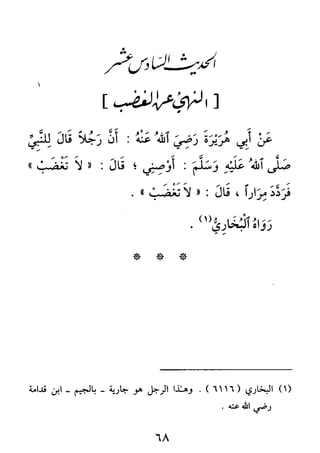 الحديث السادس عشر
[ النهي عن الغضب ]
عَنْ أَبِي هُرَيْرَةَ رَضِيَ ٱللهُ عَنْهُ : أَنَّ رَجُلاً قَالَ لِلنَّبِيِّ
صَلَّى ٱللهُ عَلَيْهِ وَسَلَّمَ : أَوْصِنِي ؛ قَالَ : « لاَ تَغْضَبْ »
فَرَدَّدَ مِرَاراً ، قَالَ : « لاَ تَغْضَبْ » .
رَوَاهُ ٱلْبُخَارِيُّ (١) .
* * *
(١) البخاري ( ٦١١٦ ) . وهـٰذا الرجل هو جارية - بالجيم - ابن قدامة
رضي الله عنه .
٦٨